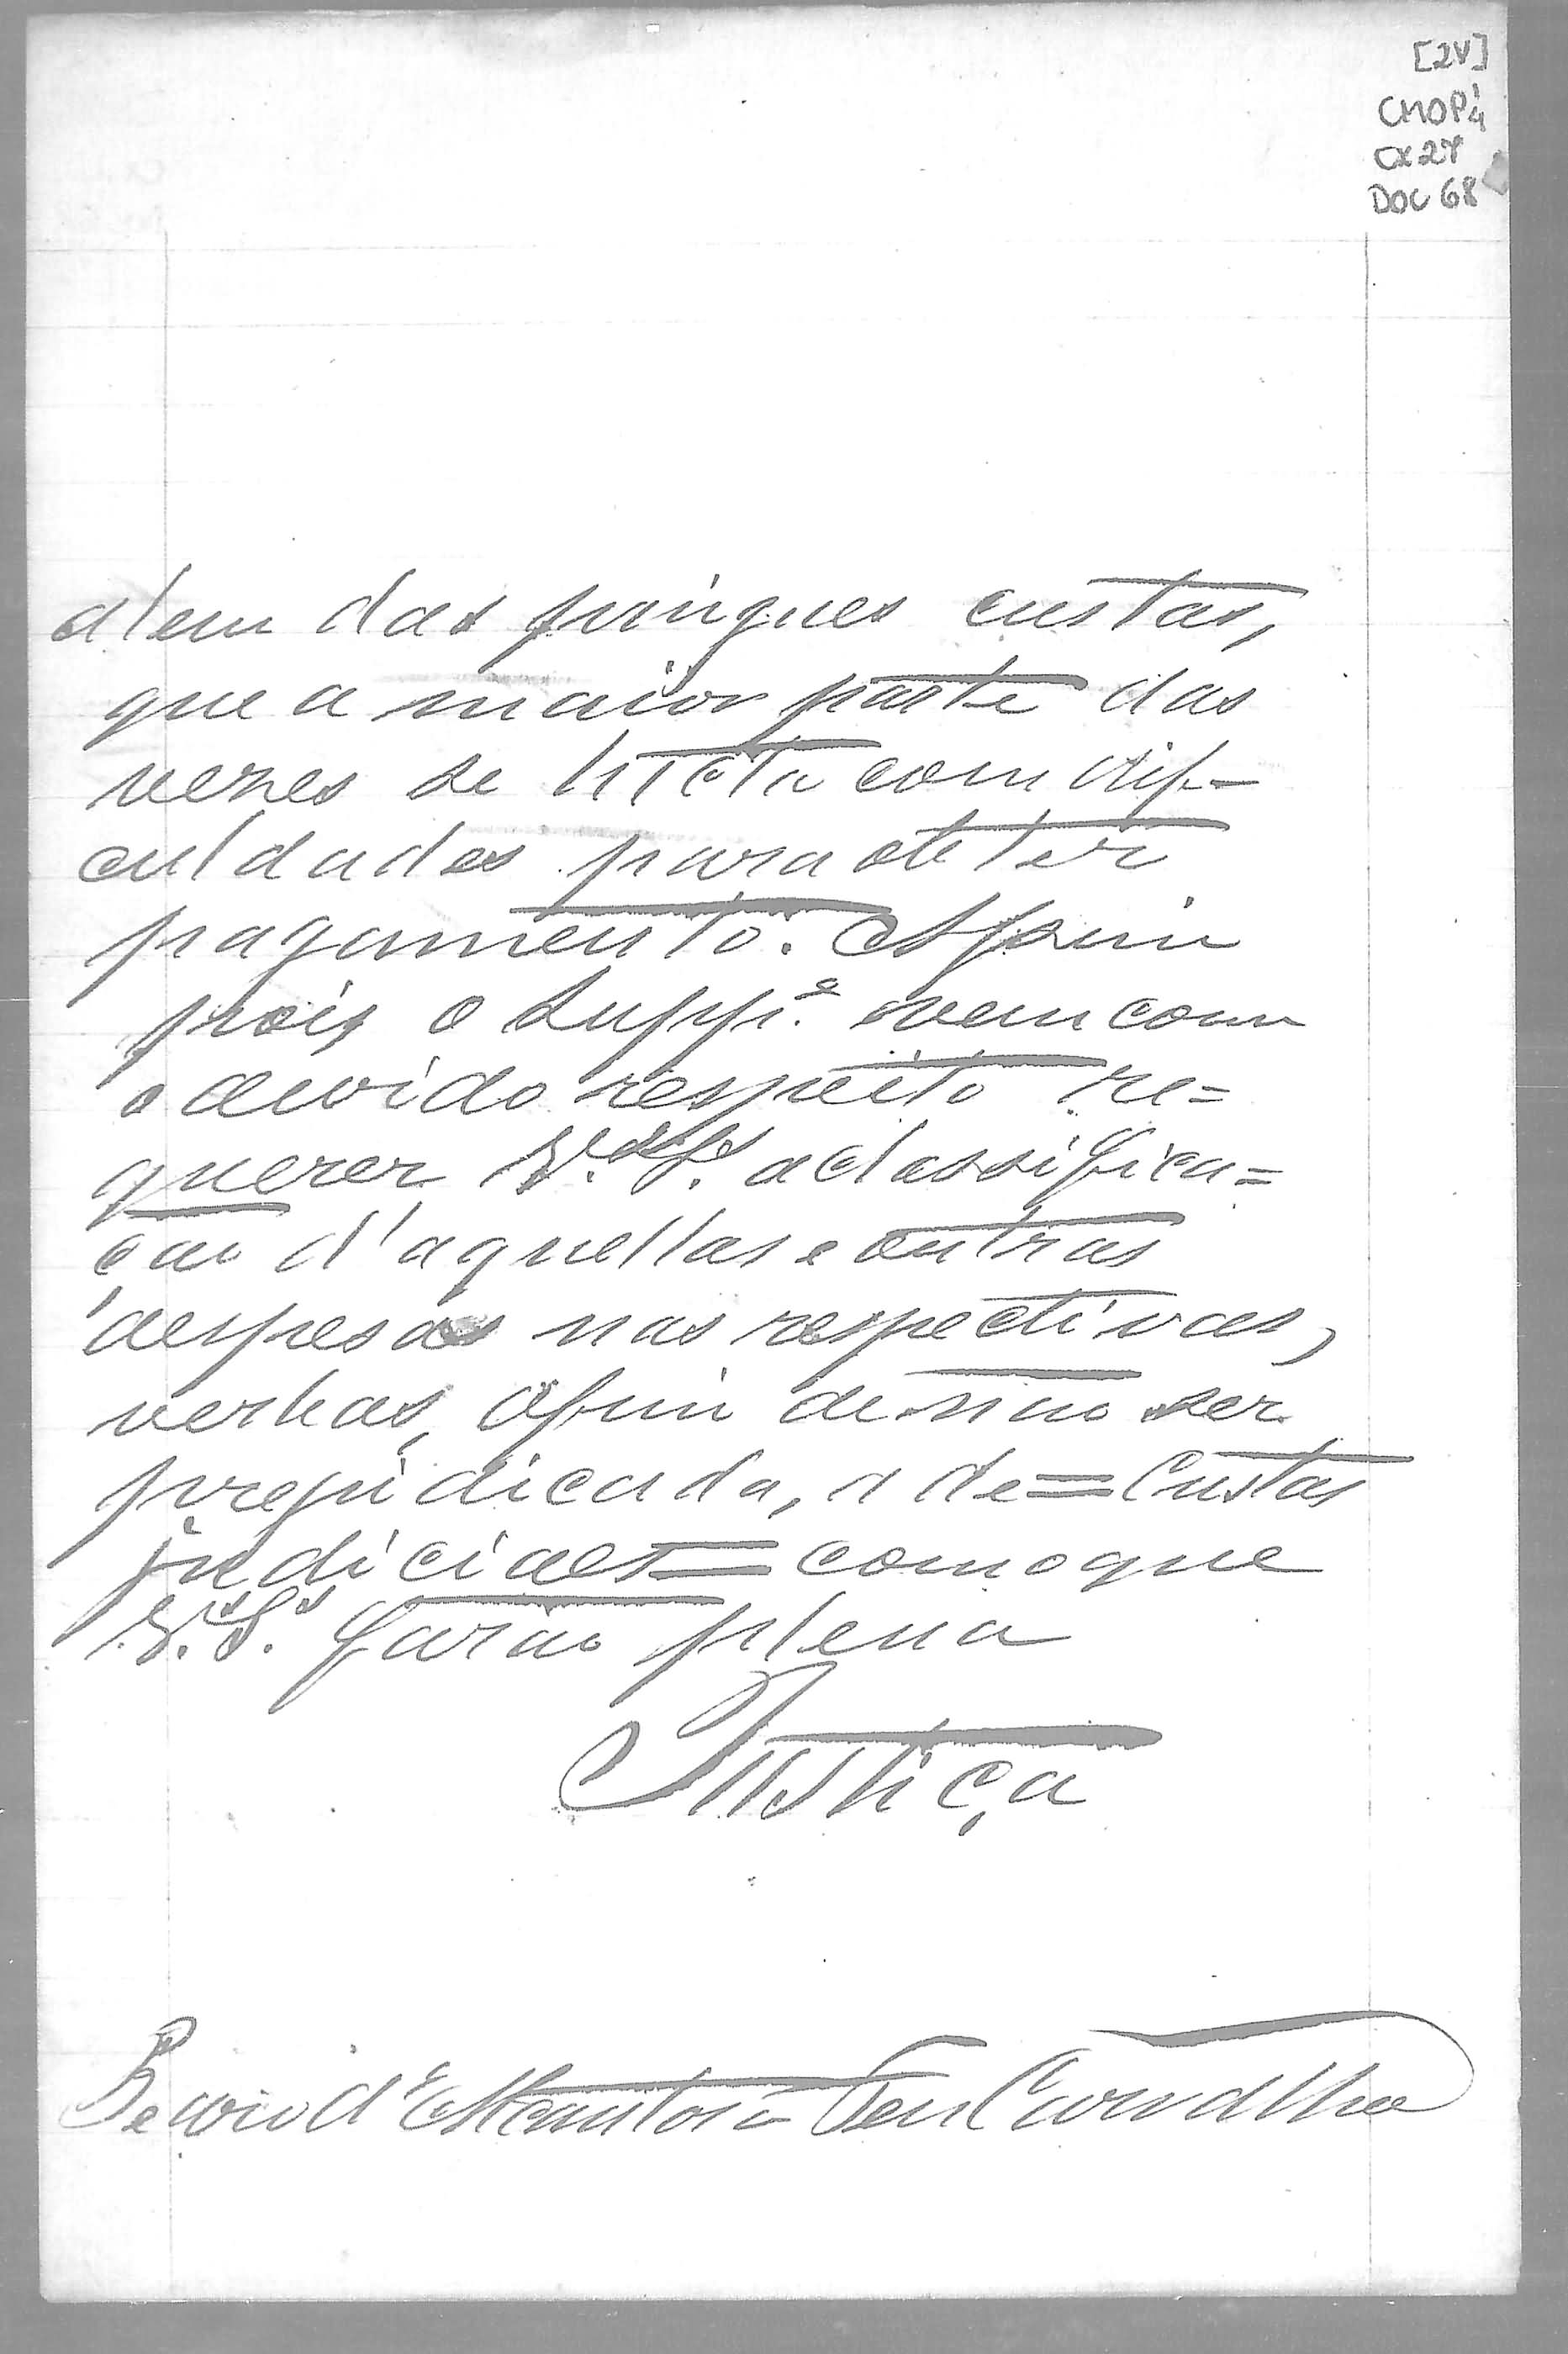 [2V]
CMOP¼
CX 27
DOC 68
alem das pingues custas,
que a maior parte das
vezes se lucta com dif-
culdades para obter
pagamento. Assim
pois o Supp.e vem com
o devido respeito re=
querer V.as S.as a classifica=
ção d'aquellas e outras
despesas nas respectivas,
verbas, afim de não ser
prejudicada, a de = Custas
judiciaes = com o que
V.as S.as farão plena
Justiça
d' Carvalho